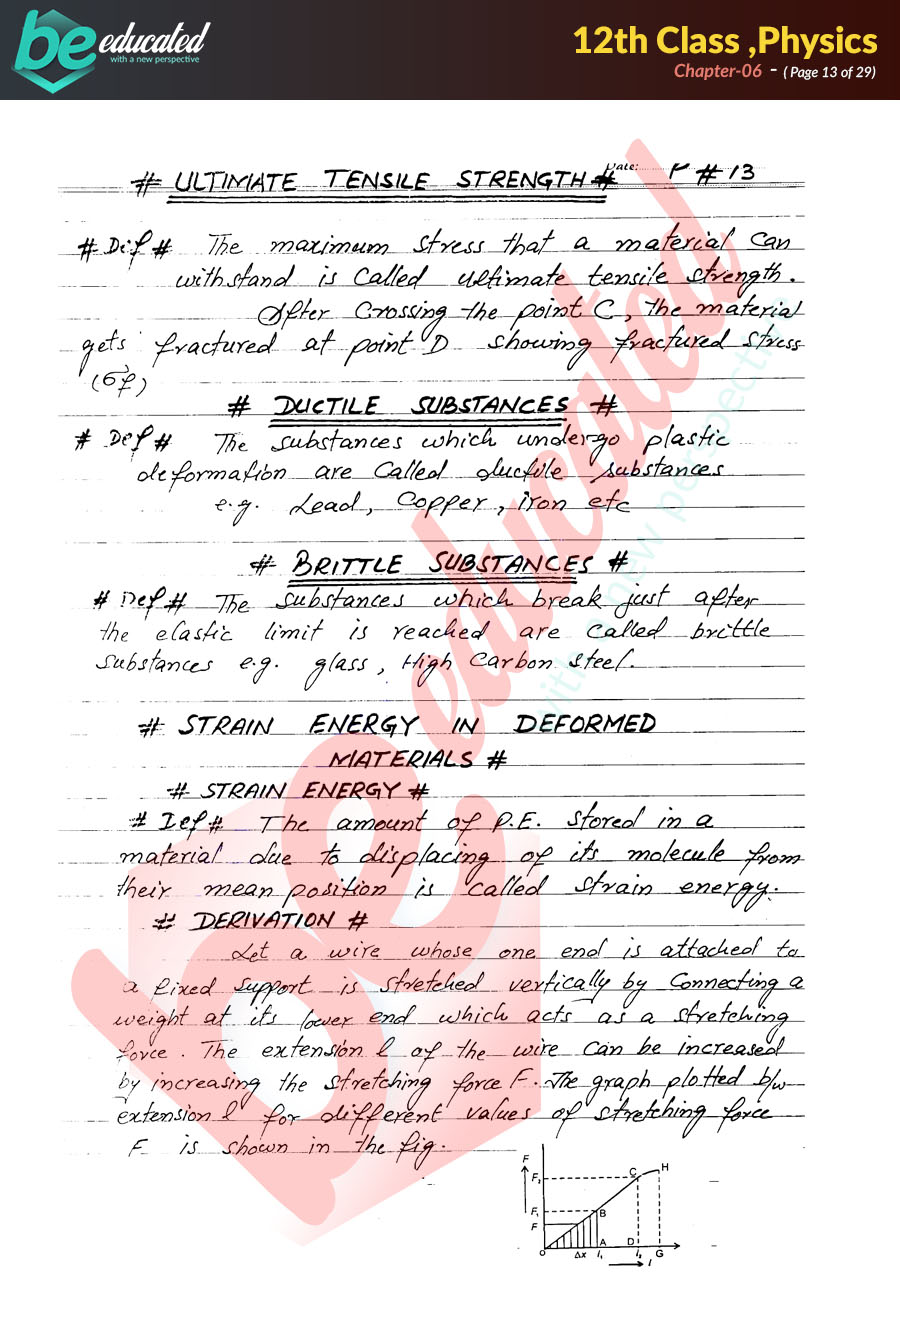 be educated
with a new perspective
12th Class ,Physics
Chapter-06 - ( Page 13 of 29)
Date: P # 13
# ULTIMATE TENSILE STRENGTH #
# Dif # The maximum stress that a material can
withstand is called ultimate tensile strength.
After crossing the point C, the material
gets fractured at point D showing fractured stress
(σf)
# DUCTILE SUBSTANCES #
# Def # The substances which undergo plastic
deformation are called ductile substances
e.g. Lead, Copper, iron etc
# BRITTLE SUBSTANCES #
# Def # The substances which break just after
the elastic limit is reached are called brittle
substances e.g. glass, High Carbon steel.
# STRAIN ENERGY IN DEFORMED
MATERIALS #
# STRAIN ENERGY #
# Def # The amount of P.E. stored in a
material due to displacing of its molecule from
their mean position is called strain energy.
# DERIVATION #
Let a wire whose one end is attached to
a fixed support is stretched vertically by connecting a
weight at its lower end which acts as a stretching
force. The extension l of the wire can be increased
by increasing the stretching force F. The graph plotted b/w
extension l for different values of stretching force
F is shown in the fig.
F
F₂ C H
F₁ B
F
O Δx A l₁ D l₂ G
l
be educated
with a new perspective